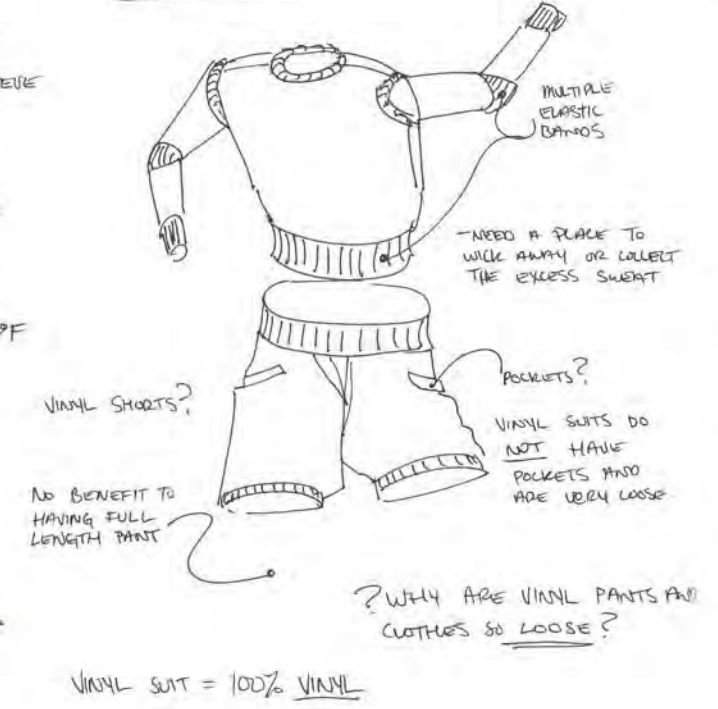 MULTIPLE
ELASTIC
BANDS
-NEED A PLACE TO
WICK AWAY OR COLLECT
THE EXCESS SWEAT
VINYL SHORTS?
POCKETS?
VINYL SUITS DO
NOT HAVE
POCKETS AND
ARE VERY LOOSE
NO BENEFIT TO
HAVING FULL
LENGTH PANT
? WHY ARE VINYL PANTS AND
CLOTHES SO LOOSE?
VINYL SUIT = 100% VINYL